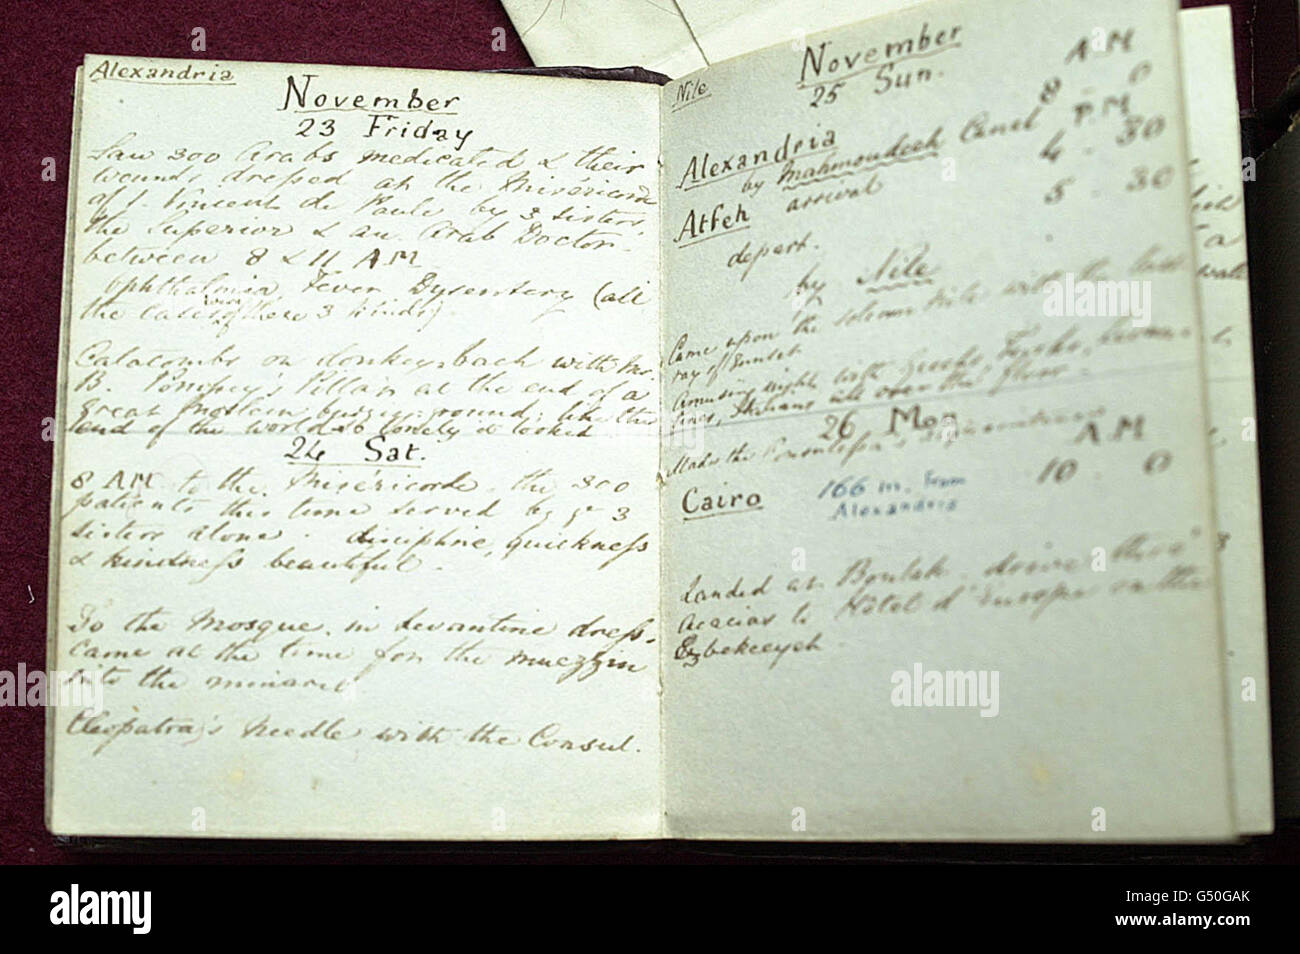 Alexandria
November
23 Friday
Saw 300 Arabs medicated & their
wounds dressed at the Miséricorde
of S. Vincent de Paule by 3 sisters,
the Superior & an Arab Doctor.
between 8 & 11 A.M
Ophthalmia Fever Dysentery (all
the cases were of these 3 kinds).
Catacombs on donkeysback with Mr.
B. Pompey's Pillar at the end of a
great Moslem burying-ground; like the
end of the world so lonely it looked
24 Sat.
8 AM to the Miséricorde. the 300
patients this time served by ye 3
sisters alone. discipline, quickness
& kindness beautiful.
To the Mosque, in Levantine dress.
came at the time for the muezzin
into the minaret.
Cleopatra's Needle with the Consul.
Nile
November
25 Sun.
A.M
Alexandria 8 - 0
by Mahmoudeeh Canal P.M
Atfeh arrival 4 - 30
depart. 5 - 30
by Nile
Came upon the solemn Nile with the last
ray of Sunset.
Amusing night with Greeks, Turks,
Italians all over the floor.
26 Mon
Makes the
A.M
Cairo 166 m. from 10 - 0
Alexandria
Landed at Boulak. drive thro'
acacias to Hotel d'Europe on the
Ezbekeeyeh.
alamy
G50GAK
www.alamy.com